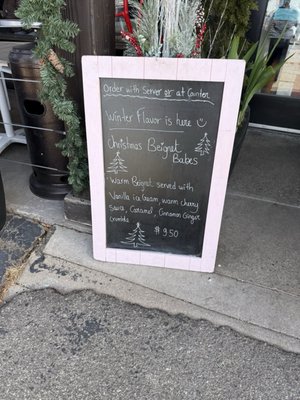 Order with Server or at Counter
Winter Flavor is here
Christmas Beignet
Babes
Warm Beignet served with
Vanilla ice cream, warm cherry
Sauce, Caramel, Cinnamon Ginger
Crumble
$9.50